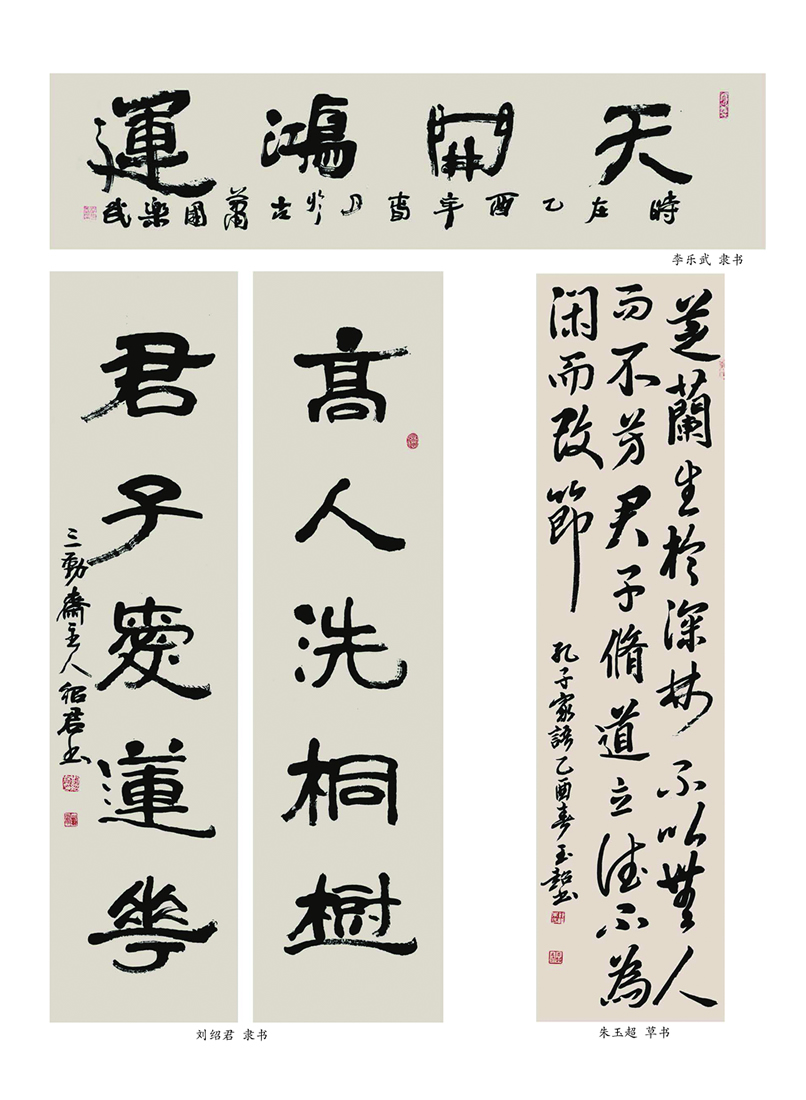 天開鴻運
時在乙酉年春月於古蕭國樂武
李乐武 隶书
高人洗桐樹
君子愛蓮華
三勤齋主人紹君書
刘绍君 隶书
芝蘭生於深林不以無人
而不芳君子脩道立德不為
閑而改節
孔子家語乙酉春玉超書
朱玉超 草书